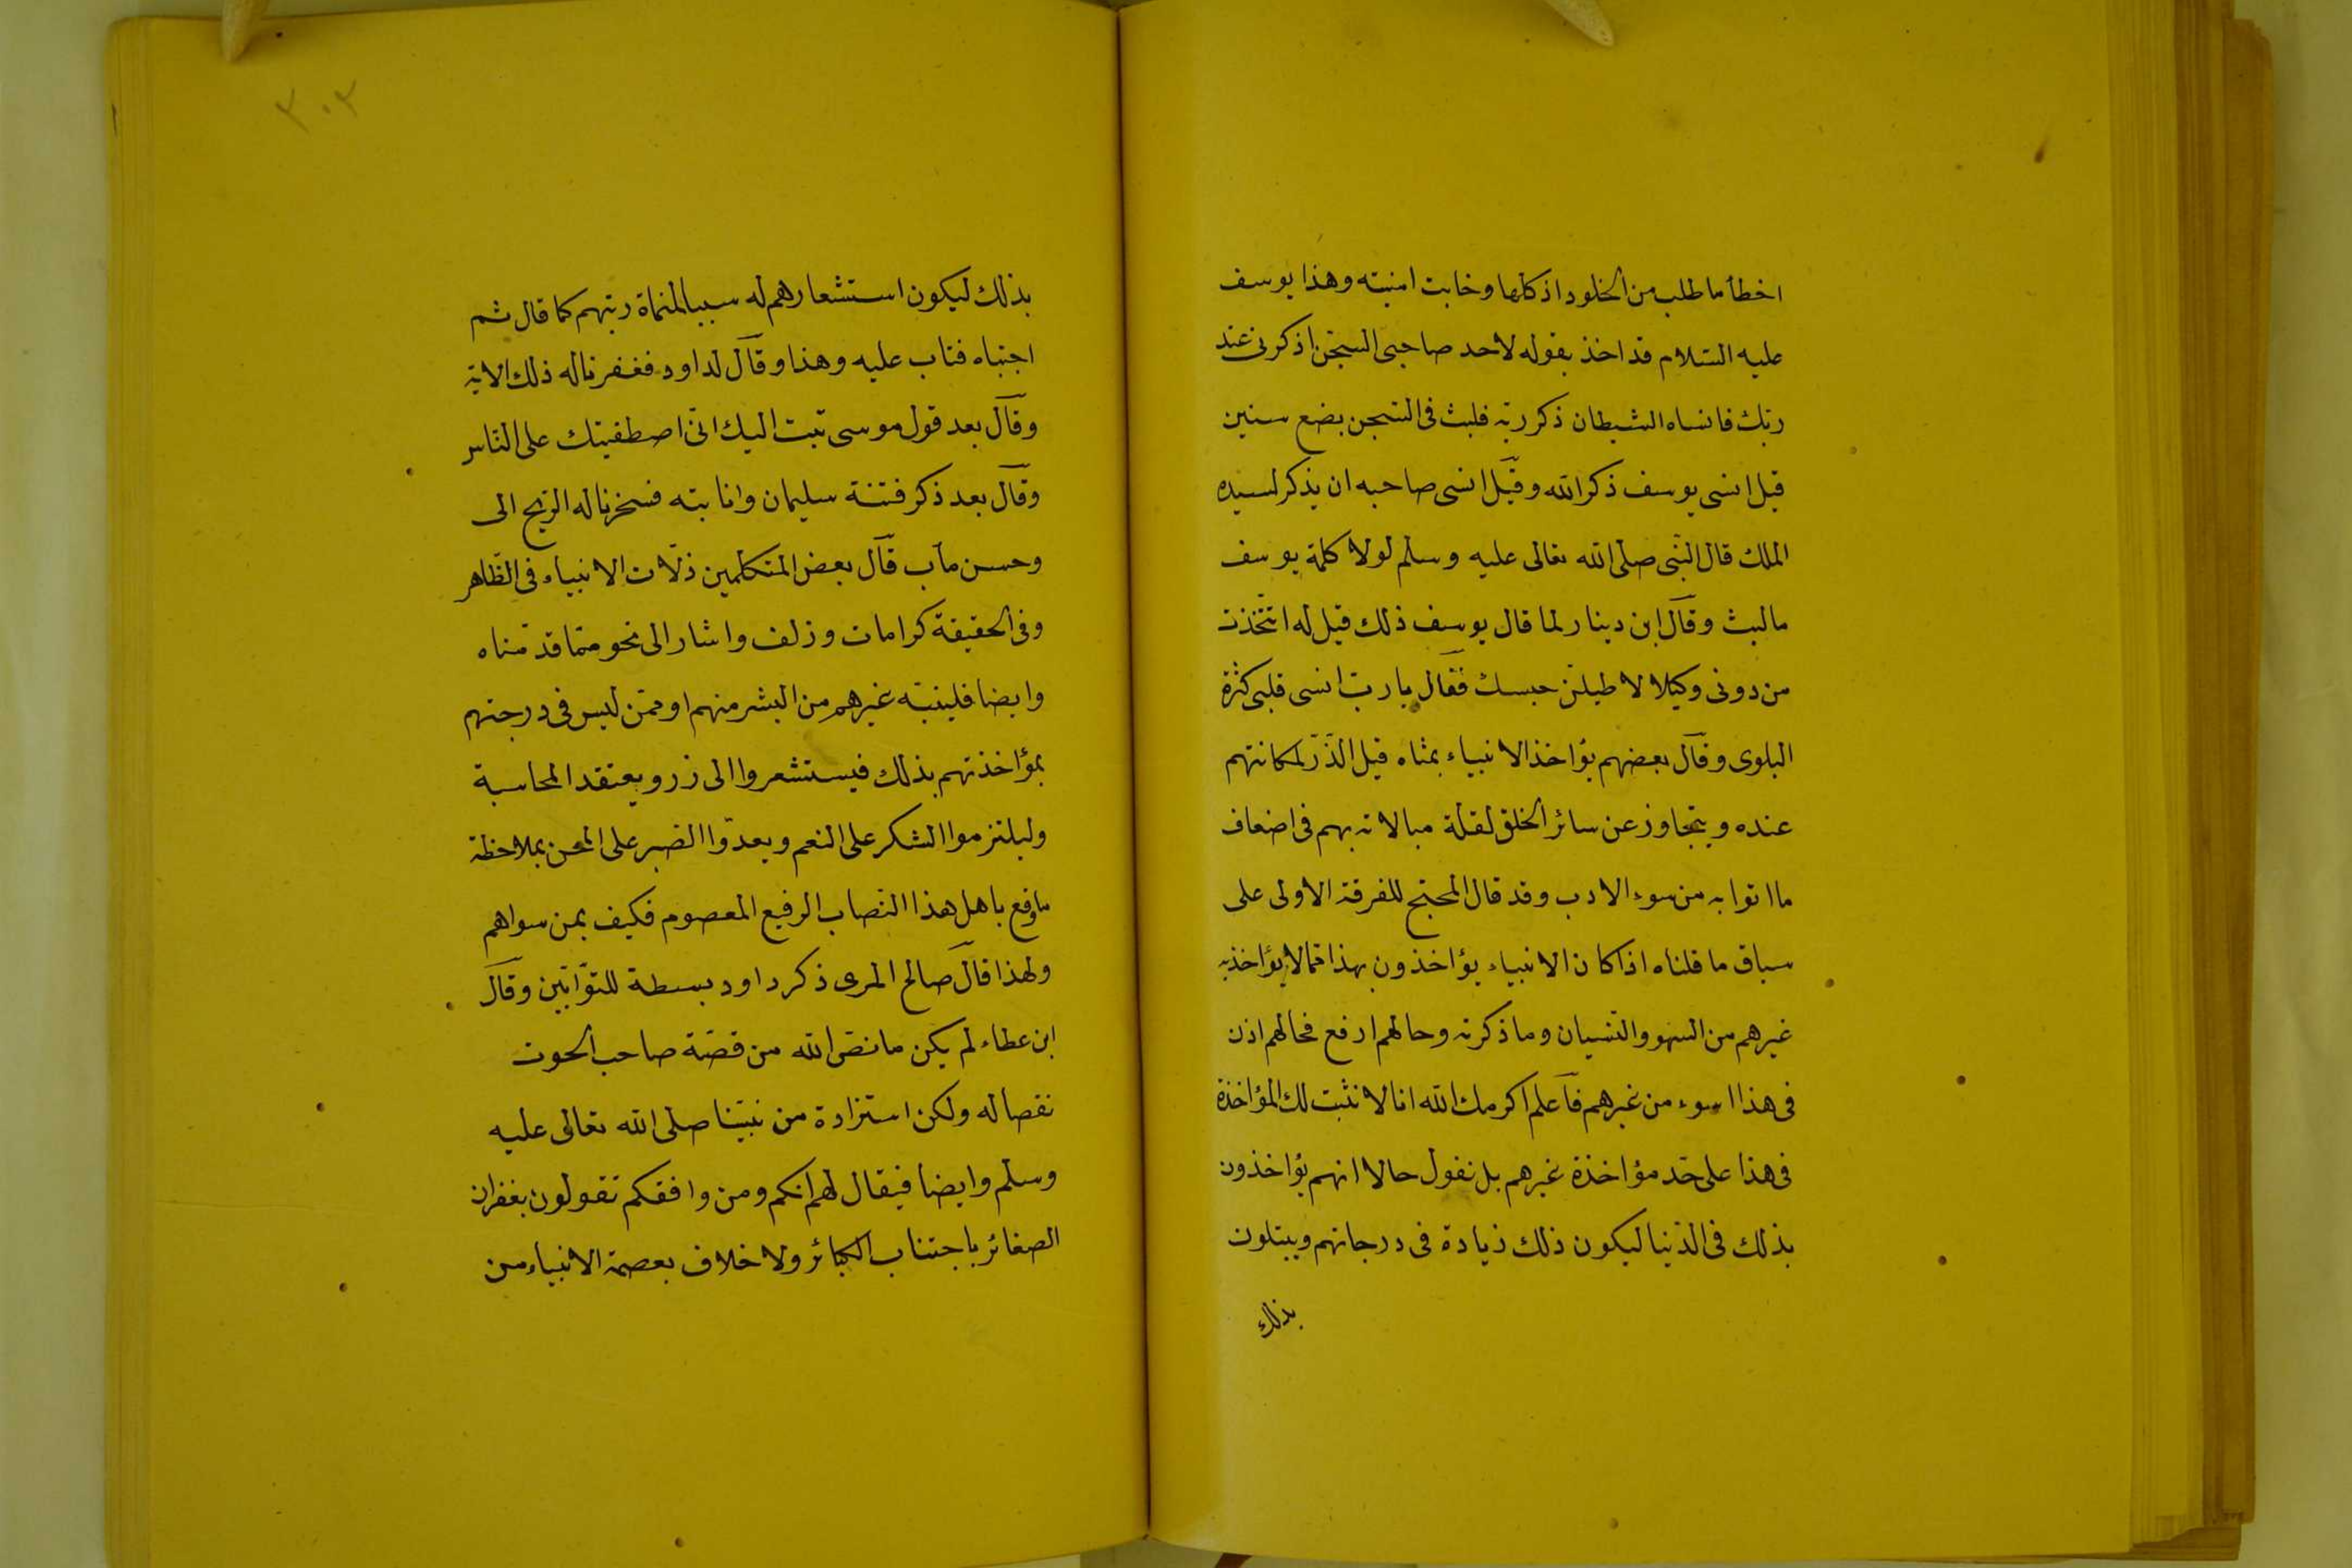 اخطأ ما طلب من الخلود اذ كلها وخابت امنيته وهذا يوسف
عليه السّلام قد اخذ بقوله لاحد صاحبى السّجن اذكرنى عند
ربّك فانساه الشيطان ذكر ربّه فلبث فى السّجن بضع سنين
قيل انسى يوسف ذكر الله وقيل انسى صاحبه ان يذكر لسيده
الملك قال النّبى صلى الله تعالى عليه وسلم لولا كلمة يوسف
ما لبث وقال ابن دينار لما قال يوسف ذلك قيل له اتّخذت
من دونى وكيلا لا طيلنّ حبسك فقال يا ربّ انسى قلبى كثرة
البلوى وقال بعضهم يؤاخذ الانبياء بمثاه قيل الذّرّ لمكانتهم
عنده ويتجاوز عن سائر الخلق لقلة مبالاته بهم فى اضعاف
ما اتوا به من سوء الادب وقد قال المحتج للفرقة الاولى على
سياق ما قلناه اذا كان الانبياء يؤاخذون بهذا ممّا لا يؤاخذ به
غيرهم من السهو والنّسيان وما ذكرته وحالهم ارفع فحالهم اذن
فى هذا اسوء من غيرهم فاعلم اكرمك الله انا لا نثبت لك المؤاخذة
فى هذا على حّد مؤاخذة غيرهم بل نقول حالا انهم يؤاخذون
بذلك فى الدّنيا ليكون ذلك زيادة فى درجاتهم ويبتلون
بذلك
٣٠٣
بذلك ليكون استشعارهم له سببا لمنماة رتبهم كما قال ثم
اجتباه فتاب عليه وهذا وقال لداود فغفرنا له ذلك الاية
وقال بعد قول موسى تبت اليك انّى اصطفيتك على النّاس
وقال بعد ذكر فتنة سليمان وانابته فسخرنا له الرّيح الى
وحسن مآب قال بعض المتكلمين ذلّات الانبياء فى الظّاهر
وفى الحقيقة كرامات وزلف واشار الى نحو ممّا قدّمناه
وايضا فلينبّه غيرهم من البشر منهم او ممّن ليس فى درجتهم
بمؤاخذتهم بذلك فيستشعروا الى زر ويعتقد المحاسبة
وليلتزموا الشكر على النعم ويعدّوا الصّبر على المحن بملاحظة
ما وقع باهل هذا النّصاب الرفيع المعصوم فكيف بمن سواهم
ولهذا قال صالح المرى ذكر داود بسطة للتوّابين وقال
ابن عطاء لم يكن ما نصّ الله من قصّة صاحب الحوت
نقصا له ولكن استزادة من نبيّنا صلى الله تعالى عليه
وسلم وايضا فيقال لهم انكم ومن وافقكم تقولون بغفران
الصغائر باجتناب الكبائر ولا خلاف بعصمة الانبياء من